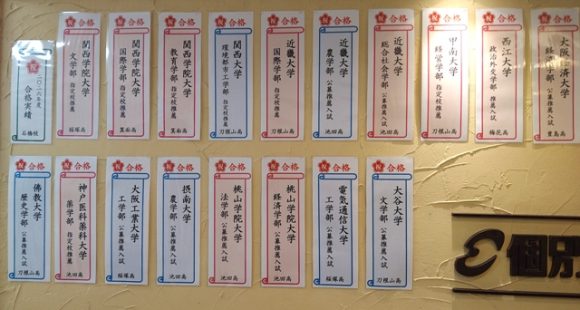 祝
二〇二六年度
合格実績
石橋校
祝 合格
関西学院大学
文学部 指定校推薦
桜塚高
祝 合格
関西学院大学
国際学部 指定校推薦
箕面高
祝 合格
関西学院大学
教育学部 指定校推薦
箕面高
祝 合格
関西大学
環境都市工学部 指定校推薦
刀根山高
祝 合格
近畿大学
国際学部 指定校推薦
刀根山高
祝 合格
近畿大学
農学部 公募推薦入試
池田高
祝 合格
近畿大学
総合社会学部 公募推薦入試
池田高
祝 合格
甲南大学
経営学部 指定校推薦
刀根山高
祝 合格
西江大学
政治外交学部 推薦入試
梅花高
祝 合格
大阪経済大学
経済学部 公募推薦入試
豊島高
祝 合格
佛教大学
歴史学部 公募推薦入試
刀根山高
祝 合格
神戸医科薬科大学
薬学部 指定校推薦
池田高
祝 合格
大阪工業大学
工学部 公募推薦入試
桜塚高
祝 合格
摂南大学
農学部 公募推薦入試
池田高
祝 合格
桃山学院大学
法学部 公募推薦入試
池田高
祝 合格
桃山学院大学
経済学部 公募推薦入試
池田高
祝 合格
電気通信大学
工学部 公募推薦入試
桜塚高
祝 合格
大谷大学
文学部 公募推薦入試
刀根山高
個別